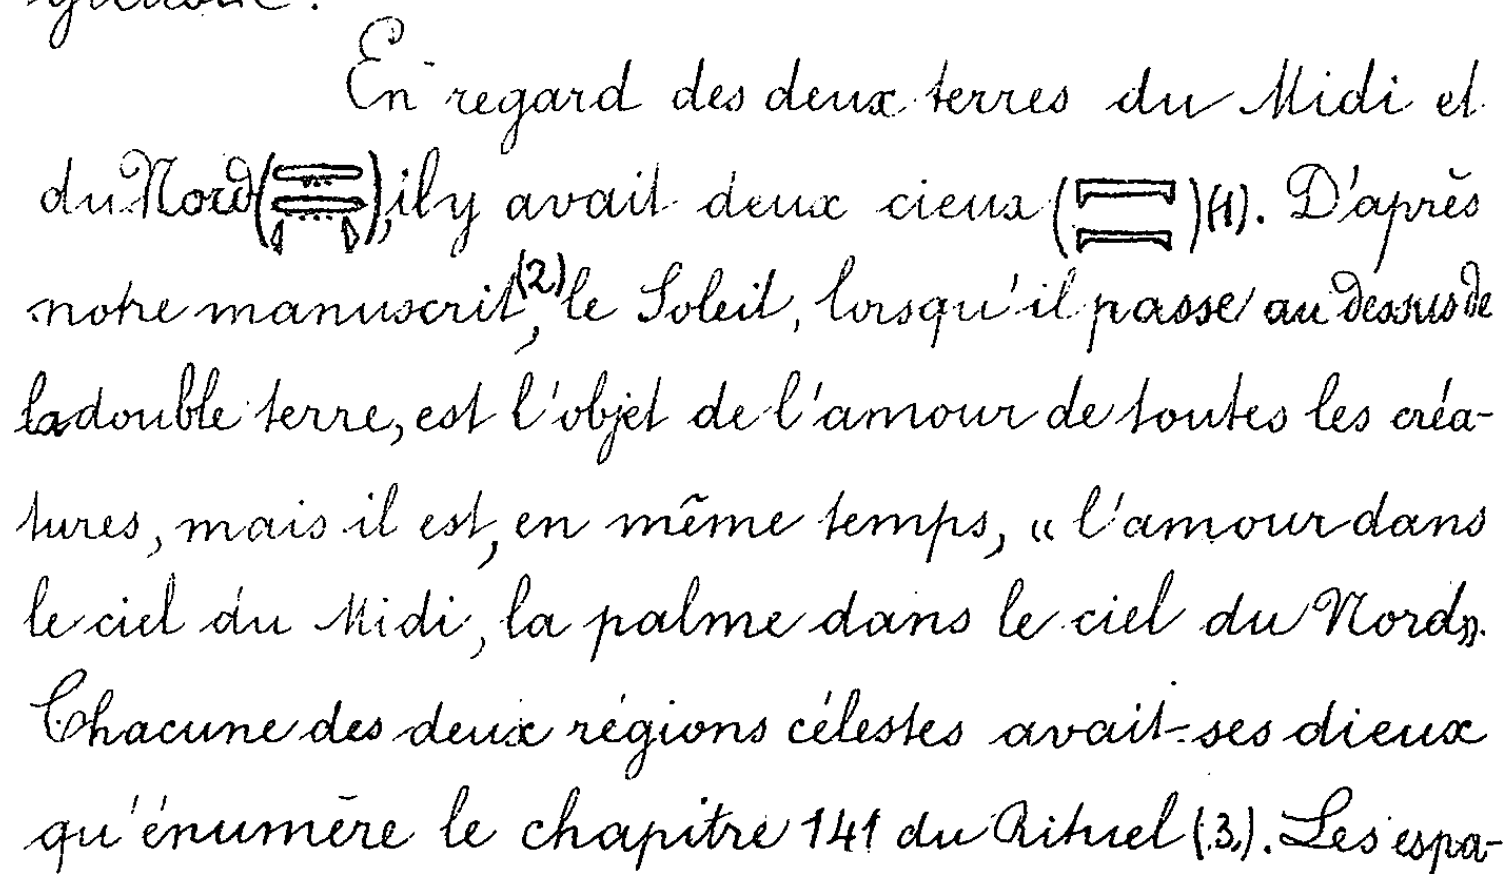 En regard des deux terres du Midi et
du Nord (𓇿𓇿), il y avait deux cieux (𓇯𓇯) (1). D'après
notre manuscrit (2), le Soleil, lorsqu'il passe au dessus de
la double terre, est l'objet de l'amour de toutes les créa-
tures, mais il est, en même temps, « l'amour dans
le ciel du Midi, la palme dans le ciel du Nord ».
Chacune des deux régions célestes avait ses dieux
qu'énumère le chapitre 141 du Rituel (3). Les espa-